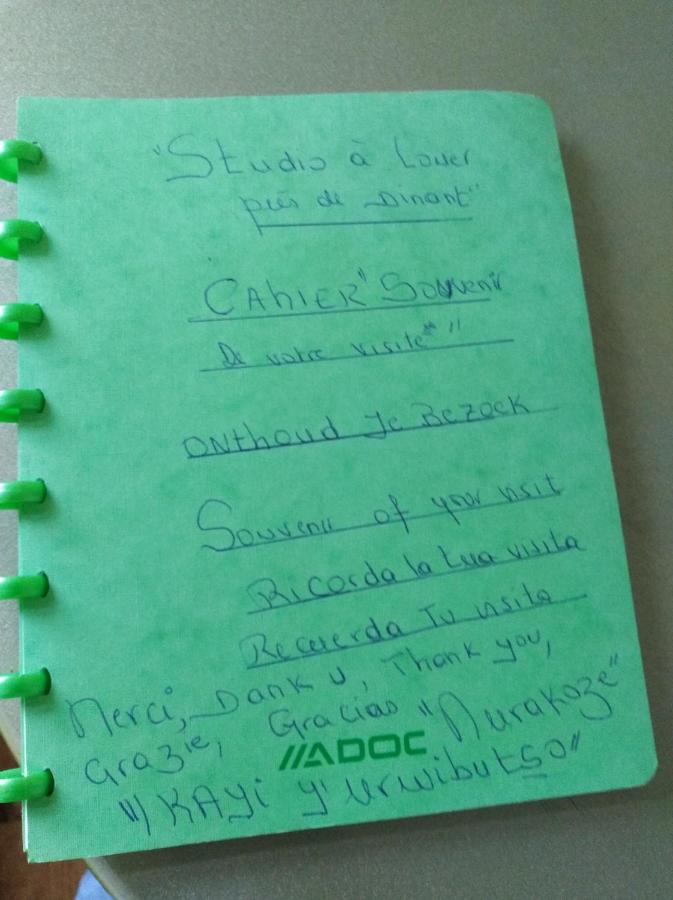 "Studio à Louer
près de Dinant"
CAhiER "Souvenir
De votre visite" "
ONthoud Je BEZOEK
Souvenir of your visit
Ricorda la tua visita
Recuerda Tu visita
Merci, Dank U, Thank you,
Grazie, Gracias "Murakoze"
//ADOC
"/ KAyi y'urwibutso"